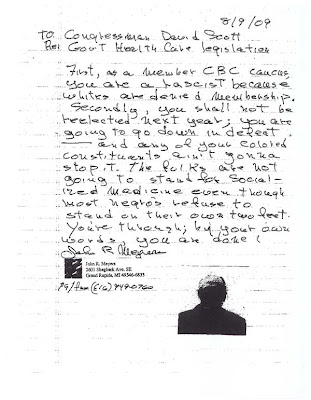 8/9/09
TO Congressman David Scott
Re: Gov't Health Care legislation
First, as a member CBC caucus
you are a fascist because
whites are denied membership.
Secondly, you shall not be
reelected next year; you are
going to go down in defeat
— and any of your colored
constituents ain't gonna
stop it. The folks are not
going to stand for Social-
ized medicine even though
most negros refuse to
stand on their own two feet.
You're through; by your own
words, you are done!
John R.
John R.
2601 Shagbark Ave. SE
Grand Rapids, MI